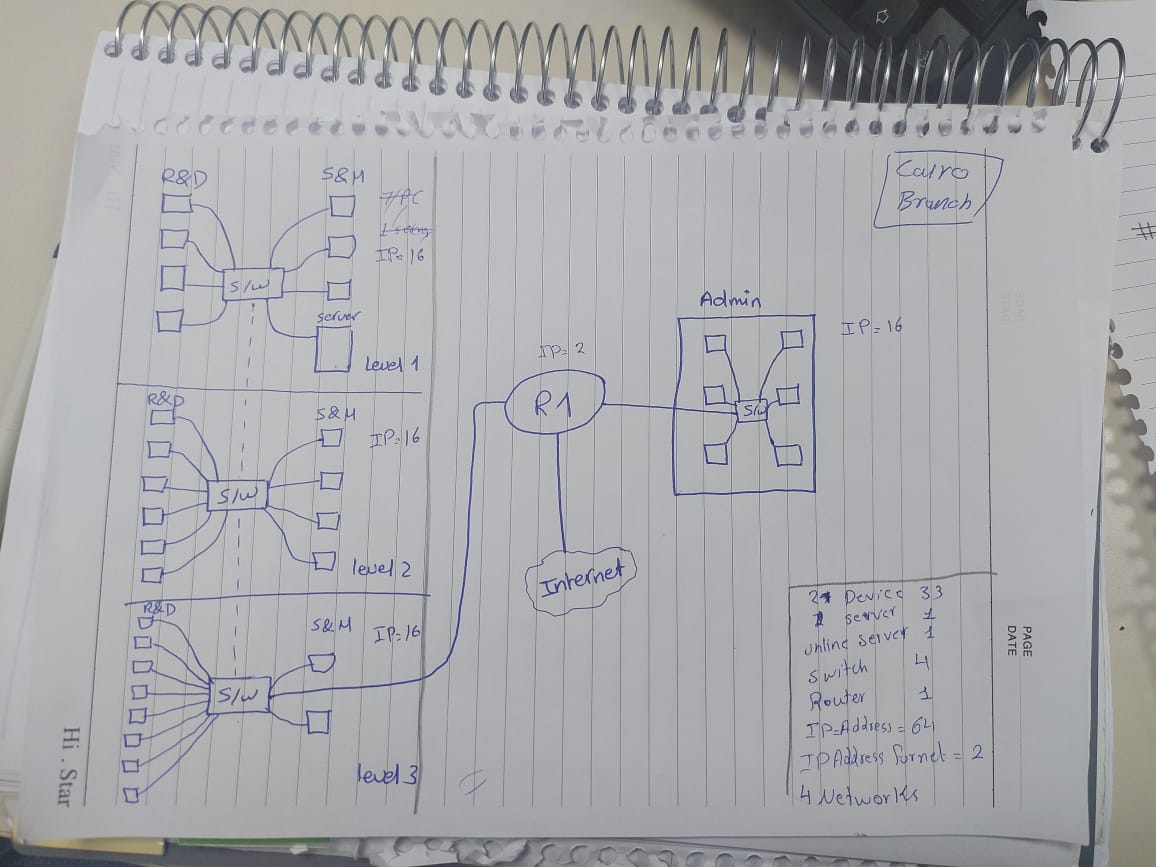 Cairo
Branch
R&D
S&M
IP=16
S/W
server
Level 1
R&D
S&M
IP=16
S/W
level 2
R&D
S&M
IP=16
S/W
level 3
IP=2
R1
Internet
Admin
IP=16
S/W
Device 33
server 1
online server 1
Switch 4
Router 1
IP-Address = 64
IP Address for net = 2
4 Networks
PAGE
DATE
Hi . Star
#